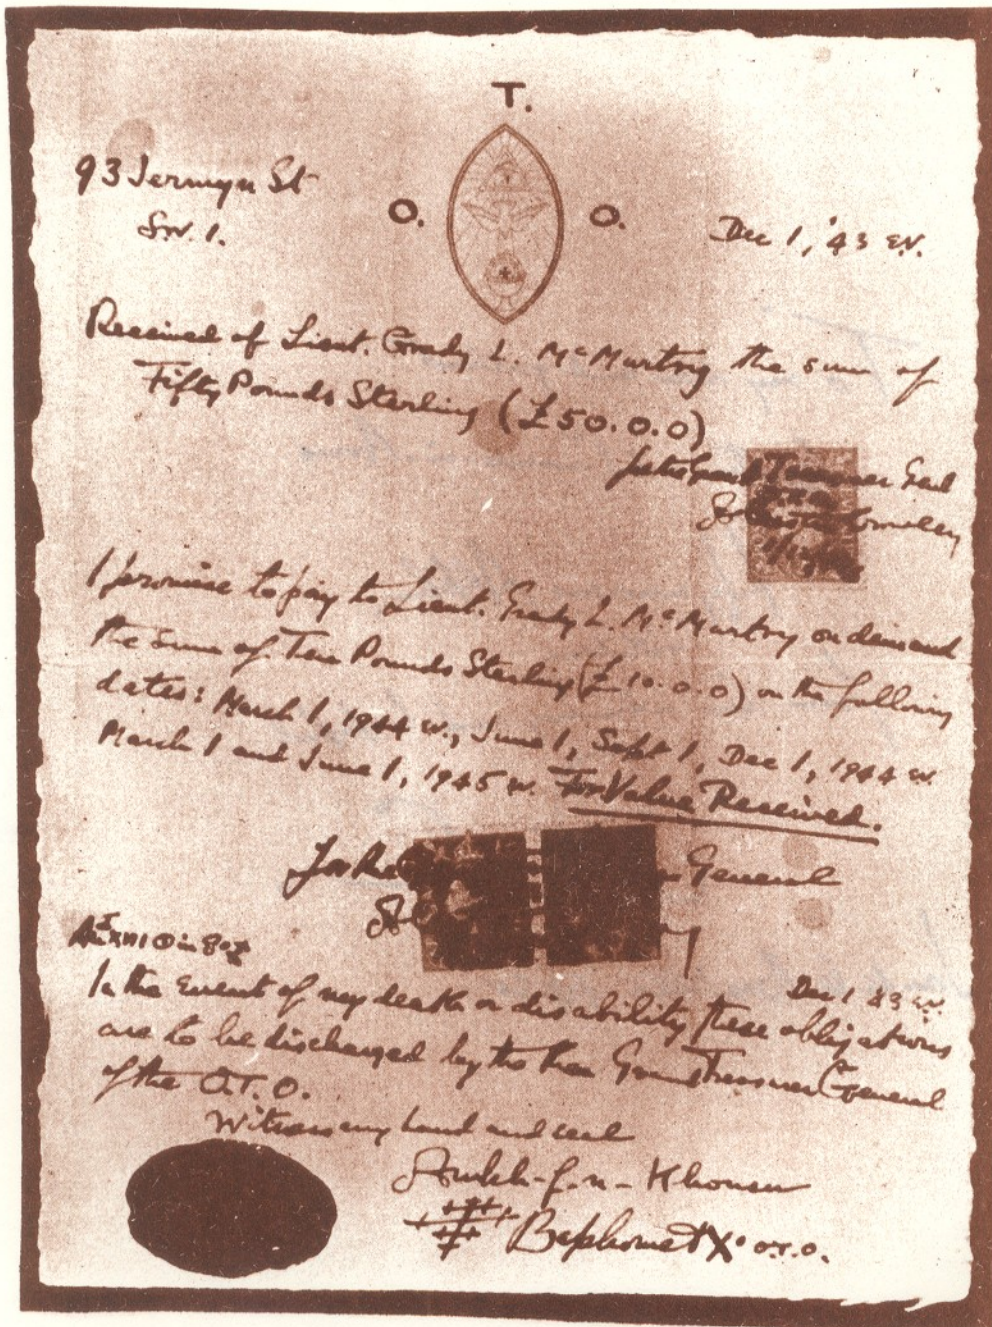 T.
O. O.
93 Jermyn St
S.W. 1.
Dec 1, '43 e.v.
Received of Lieut. Grady L. McMurtry the sum of
Fifty Pounds Sterling (£50.0.0)
for the Grand Treasurer Genl
Crowley
I promise to pay to Lieut. Grady L. McMurtry on demand
the sum of Ten Pounds Sterling (£10.0.0) on the following
dates: March 1, 1944 e.v., June 1, Sept 1, Dec 1, 1944 e.v.
March 1 and June 1, 1945 e.v. For Value Received.
For the General
Dec 1 '43 e.v.
In the event of my death or disability, these obligations
are to be discharged by the then Grand Treasurer General
of the O.T.O.
Witness my hand and seal
Ankh-f-n-Khonsu
Baphomet X° O.T.O.